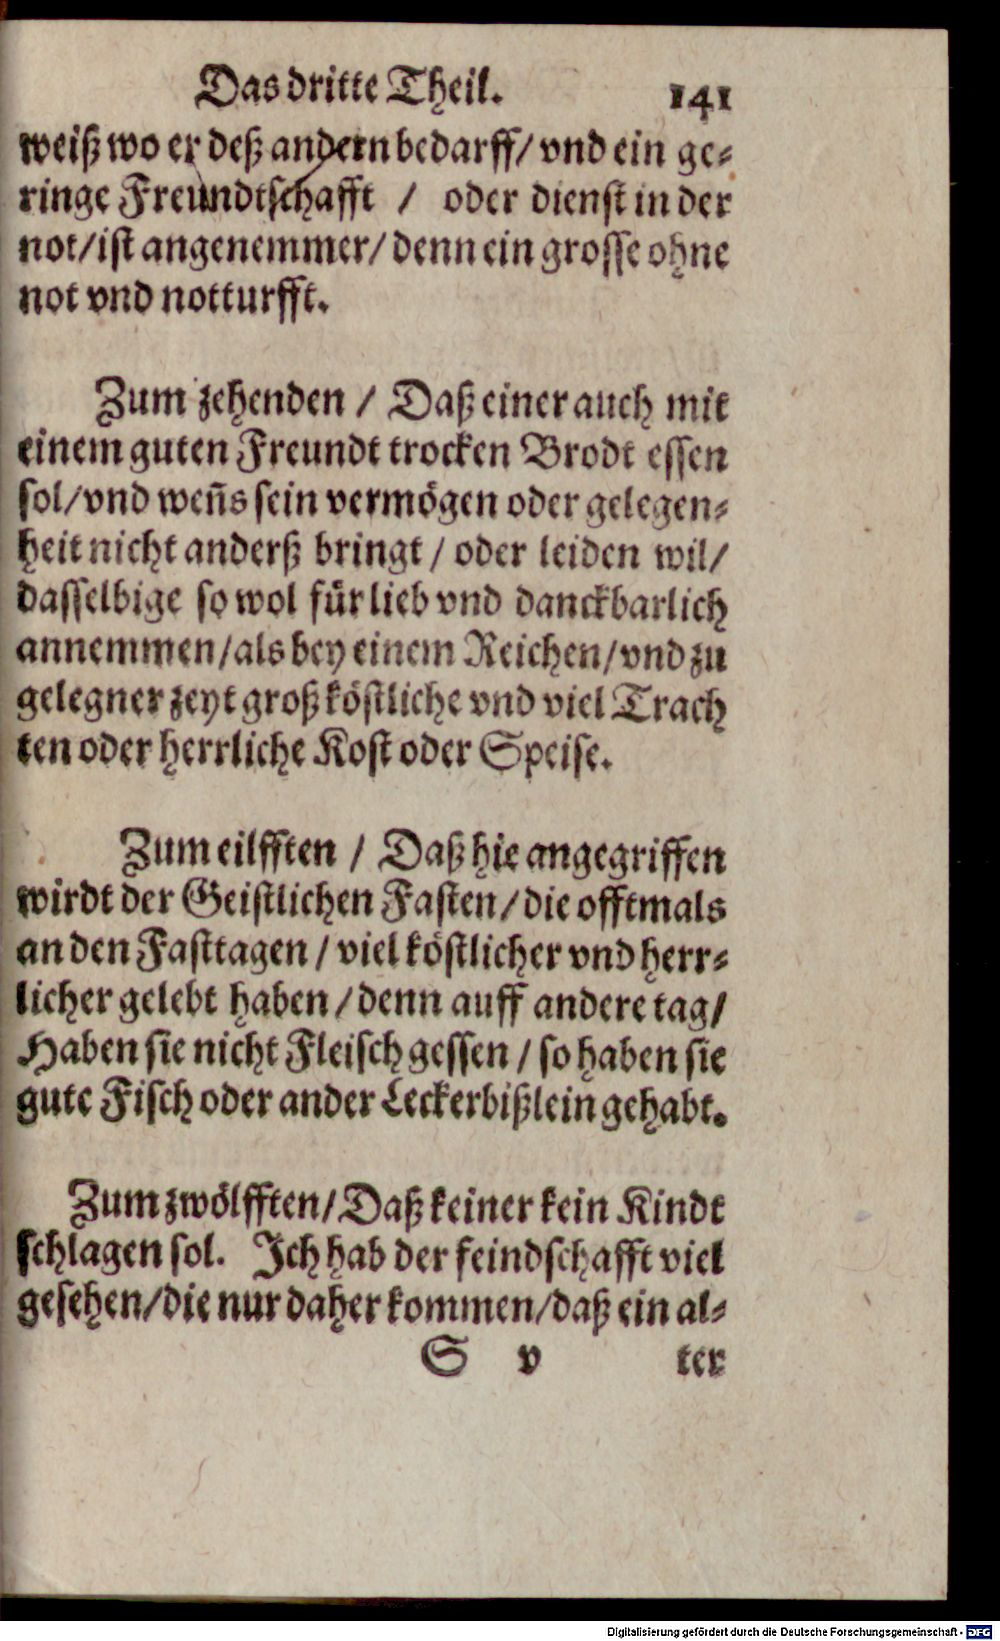 Das dritte Theil. 141
weiß wo er deß andern bedarff/ vnd ein ge-
ringe Freundtschafft / oder dienst in der
not/ ist angenemmer/ denn ein grosse ohne
not vnd notturfft.
Zum zehenden / Daß einer auch mit
einem guten Freundt trocken Brodt essen
sol/ vnd weñs sein vermögen oder gelegen-
heit nicht anderß bringt / oder leiden wil/
dasselbige so wol für lieb vnd danckbarlich
annemmen/ als bey einem Reichen/ vnd zu
gelegner zeyt groß köstliche vnd viel Trach
ten oder herrliche Kost oder Speise.
Zum eilfften / Daß hie angegriffen
wirdt der Geistlichen Fasten/ die offtmals
an den Fasttagen / viel köstlicher vnd herr-
licher gelebt haben / denn auff andere tag/
Haben sie nicht Fleisch gessen / so haben sie
gute Fisch oder ander Leckerbißlein gehabt.
Zum zwölfften/ Daß keiner kein Kindt
schlagen sol. Ich hab der feindschafft viel
gesehen/ die nur daher kommen/ daß ein al-
S v ter
Digitalisierung gefördert durch die Deutsche Forschungsgemeinschaft - DFG